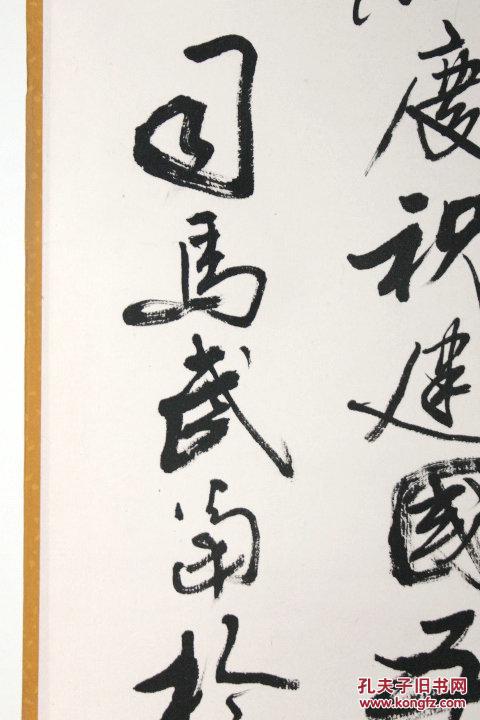 慶祝建國五
司馬武當於
孔夫子旧书网
www.kongfz.com